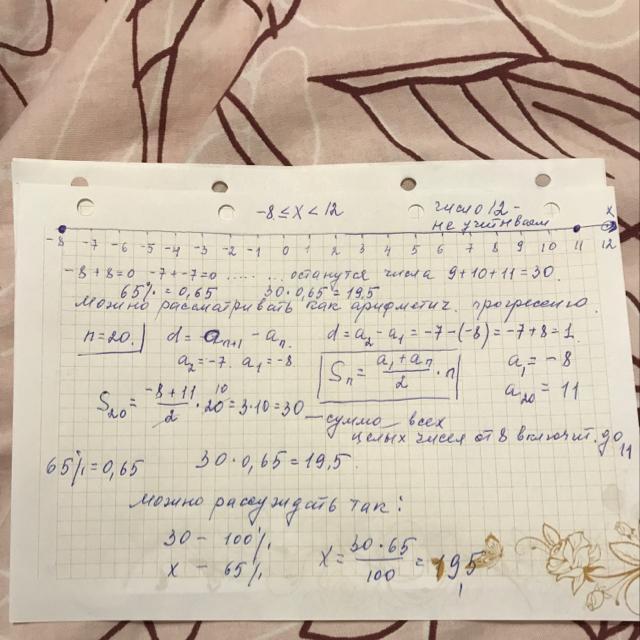 -8 ≤ x < 12
число 12 -
не учитываем
x
-8 -7 -6 -5 -4 -3 -2 -1 0 1 2 3 4 5 6 7 8 9 10 11 12
-8+8=0 -7+-7=0 ..... ...останутся числа 9+10+11=30.
65% = 0,65 30·0,65=19,5
Можно рассматривать как арифметич. прогрессию.
n=20. d = a_{n+1} - a_n. d = a_2 - a_1 = -7-(-8) = -7+8=1
a_2=-7. a_1=-8. S_n = \frac{a_1+a_n}{2} · n a_1 = -8
a_{20} = 11
S_{20} = \frac{-8+11}{2} · 20 10 = 3·10=30 — сумма всех
целых чисел от 8 включит. до 11
65% = 0,65 30·0,65=19,5.
Можно рассуждать так:
30 - 100%
x - 65%
x = \frac{30·65}{100} = 19,5